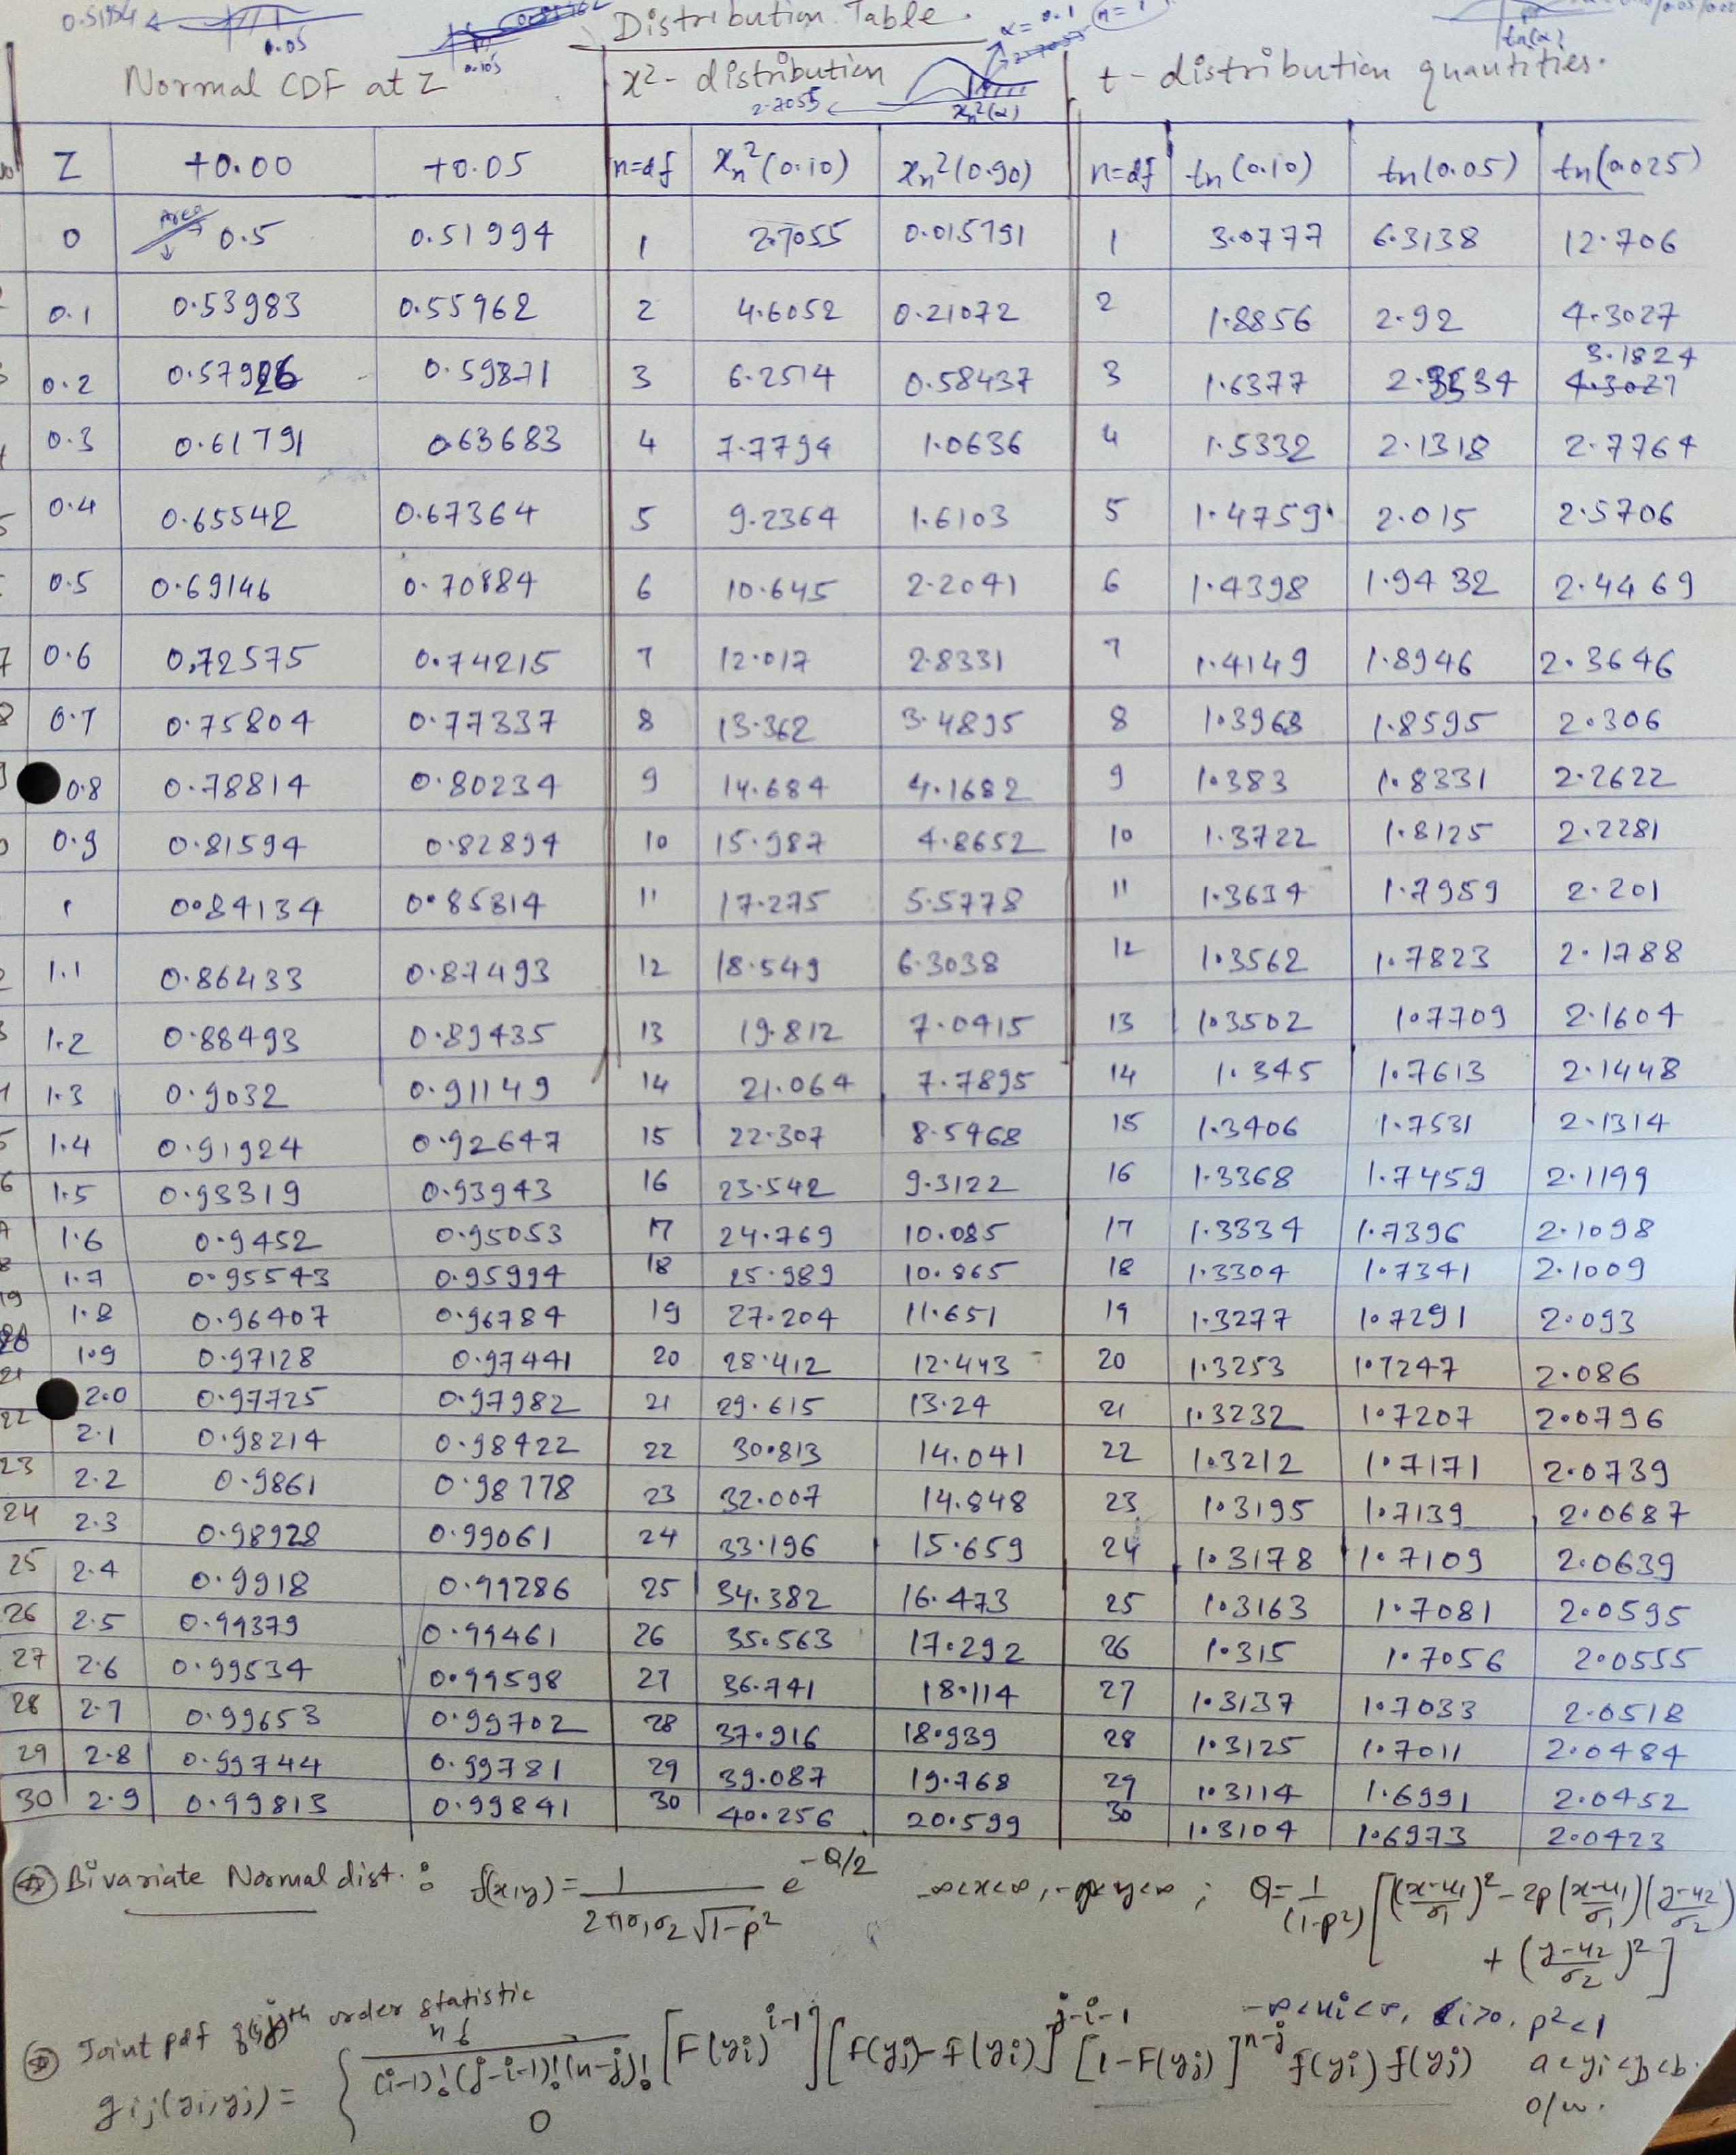 Distribution Table.
0.51994
0.05
α = 0.1
n=1
Normal CDF at Z
x²-distribution
2.7055
xn²(α)
t-distribution quantities.
tn(α)
Z +0.00 +0.05 n=df xn²(0.10) xn²(0.90) n=df tn(0.10) tn(0.05) tn(0.025)
Area
0 0.5 0.51994 1 2.7055 0.015791 1 3.0777 6.3138 12.706
0.1 0.53983 0.55962 2 4.6052 0.21072 2 1.8856 2.92 4.3027
3.1824
0.2 0.57926 0.59871 3 6.2514 0.58437 3 1.6377 2.3534 4.3027
0.3 0.61791 0.63683 4 7.7794 1.0636 4 1.5332 2.1318 2.7764
0.4 0.65542 0.67364 5 9.2364 1.6103 5 1.4759 2.015 2.5706
0.5 0.69146 0.70884 6 10.645 2.2041 6 1.4398 1.9432 2.4469
7 0.6 0.72575 0.74215 7 12.017 2.8331 7 1.4149 1.8946 2.3646
8 0.7 0.75804 0.77337 8 13.362 3.4895 8 1.3968 1.8595 2.306
0.8 0.78814 0.80234 9 14.684 4.1682 9 1.383 1.8331 2.2622
0.9 0.81594 0.82894 10 15.987 4.8652 10 1.3722 1.8125 2.2281
1 0.84134 0.85314 11 17.275 5.5778 11 1.3634 1.7959 2.201
1.1 0.86433 0.87493 12 18.549 6.3038 12 1.3562 1.7823 2.1788
1.2 0.88493 0.89435 13 19.812 7.0415 13 1.3502 1.7709 2.1604
1.3 0.9032 0.91149 14 21.064 7.7895 14 1.345 1.7613 2.1448
1.4 0.91924 0.92647 15 22.307 8.5468 15 1.3406 1.7531 2.1314
1.5 0.93319 0.93943 16 23.542 9.3122 16 1.3368 1.7459 2.1199
1.6 0.9452 0.95053 17 24.769 10.085 17 1.3334 1.7396 2.1098
1.7 0.95543 0.95994 18 25.989 10.865 18 1.3304 1.7341 2.1009
19 1.8 0.96407 0.96784 19 27.204 11.651 19 1.3277 1.7291 2.093
20 1.9 0.97128 0.97441 20 28.412 12.443 20 1.3253 1.7247 2.086
21 2.0 0.97725 0.97982 21 29.615 13.24 21 1.3232 1.7207 2.0796
22 2.1 0.98214 0.98422 22 30.813 14.041 22 1.3212 1.7171 2.0739
23 2.2 0.9861 0.98778 23 32.007 14.848 23 1.3195 1.7139 2.0687
24 2.3 0.98928 0.99061 24 33.196 15.659 24 1.3178 1.7109 2.0639
25 2.4 0.9918 0.99286 25 34.382 16.473 25 1.3163 1.7081 2.0595
26 2.5 0.99379 0.99461 26 35.563 17.292 26 1.315 1.7056 2.0555
27 2.6 0.99534 0.99598 27 36.741 18.114 27 1.3137 1.7033 2.0518
28 2.7 0.99653 0.99702 28 37.916 18.939 28 1.3125 1.7011 2.0484
29 2.8 0.99744 0.99781 29 39.087 19.768 29 1.3114 1.6991 2.0452
30 2.9 0.99813 0.99841 30 40.256 20.599 30 1.3104 1.6973 2.0423
Bivariate Normal dist. : f(x,y) = 1/(2πσ₁σ₂√1-ρ²) e^(-Q/2) -∞<x<∞, -∞<y<∞ ; Q = 1/(1-ρ²) [((x-u₁)/σ₁)² - 2ρ((x-u₁)/σ₁)((y-u₂)/σ₂)
+ ((y-u₂)/σ₂)²]
-∞<ui<∞, σi>0, ρ²<1
Joint pdf of (i,j)th order statistic
gij(yi,yj) = { n!/((i-1)!(j-i-1)!(n-j)!) [F(yi)^(i-1)][F(yj)-F(yi)]^(j-i-1) [1-F(yj)]^(n-j) f(yi) f(yj) a<yi<yj<b.
0 o/w.